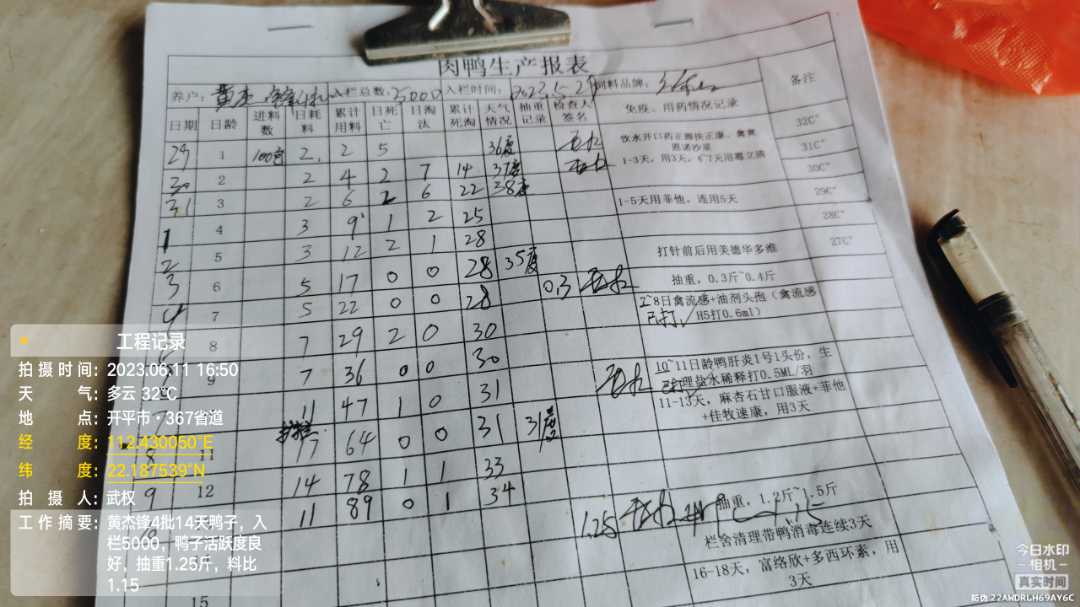 肉鸭生产报表
养户: 入栏总数: 5000 入栏时间: 2023.5.29 饲料品牌:
日期 日龄 进料数 日耗料 累计用料 日死亡 日淘汰 累计死淘 天气情况 抽重记录 检查人签名 免疫、用药情况记录 备注
29 1 100包 2 2 5 36度
饮水开口药正雅快正康、禽黄
1-3天, 用3天, 6 7天用霉立清
32C°
31C°
30 2 2 4 2 7 14 37度
30C°
31 3 2 6 2 6 22 38度 1-5天用菲他, 连用5天 29C°
1 4 3 9 1 2 25 28C°
2 5 3 12 2 1 28 打针前后用美德华多维 27C°
3 6 5 17 0 0 28 35度 0.3 抽重, 0.3斤~0.4斤
4 7 5 22 0 0 28
7~8日禽流感+油剂头孢(禽流感
已打, H5打0.6ml)
8 7 29 2 0 30
9 7 36 0 0 30
10~11日龄鸭肝炎1号1头份, 生
理盐水稀释打0.5ML/羽
11 47 1 0 31
11-13天, 麻杏石甘口服液+菲他
+佳牧速康, 用3天
8 11 17 64 0 0 31 31度
9 12 14 78 1 1 33
11 89 0 1 34
1.25 抽重, 1.2斤~1.5斤
栏舍清理带鸭消毒连续3天
15
16-18天, 富络欣+多西环素, 用
3天
工程记录
拍摄时间: 2023.06.11 16:50
天气: 多云 32℃
地点: 开平市·367省道
经度: 112.430050°E
纬度: 22.187539°N
拍摄人: 武权
工作摘要: 黄杰锋4批14天鸭子, 入
栏5000, 鸭子活跃度良
好, 抽重1.25斤, 料比
1.15
今日水印
-相机-
真实时间
防伪 22AWDRLH69AY6C